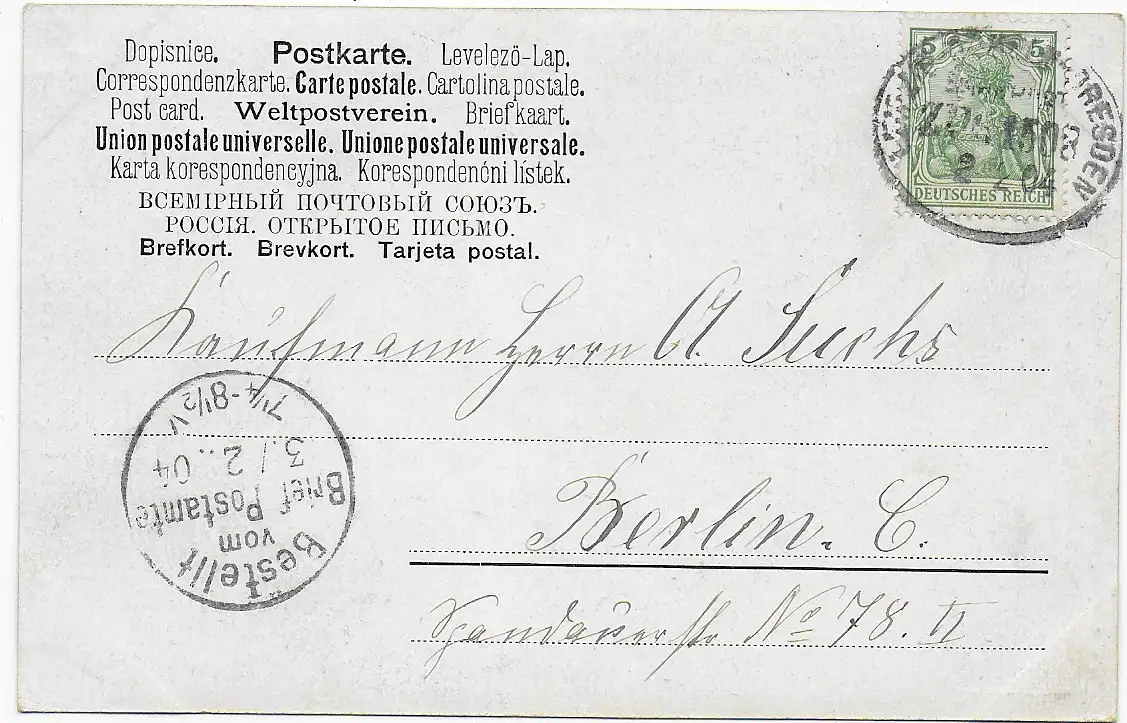 Dopisnice. Postkarte. Levelezö-Lap.
Correspondenzkarte. Carte postale. Cartolina postale.
Post card. Weltpostverein. Briefkaart.
Union postale universelle. Unione postale universale.
Karta korespondencyjna. Korespondenćni lístek.
ВСЕМІРНЫЙ ПОЧТОВЫЙ СОЮЗЪ.
РОССІЯ. ОТКРЫТОЕ ПИСЬМО.
Brefkort. Brevkort. Tarjeta postal.
5 5
DEUTSCHES REICH
DRESDEN
2 2 04
Kaufmann Herrn A. Suchs
Berlin. C.
Spandauerstr No 78. II
Bestellt
vom
Brief Postamte
3./2..04
7¼-8½V